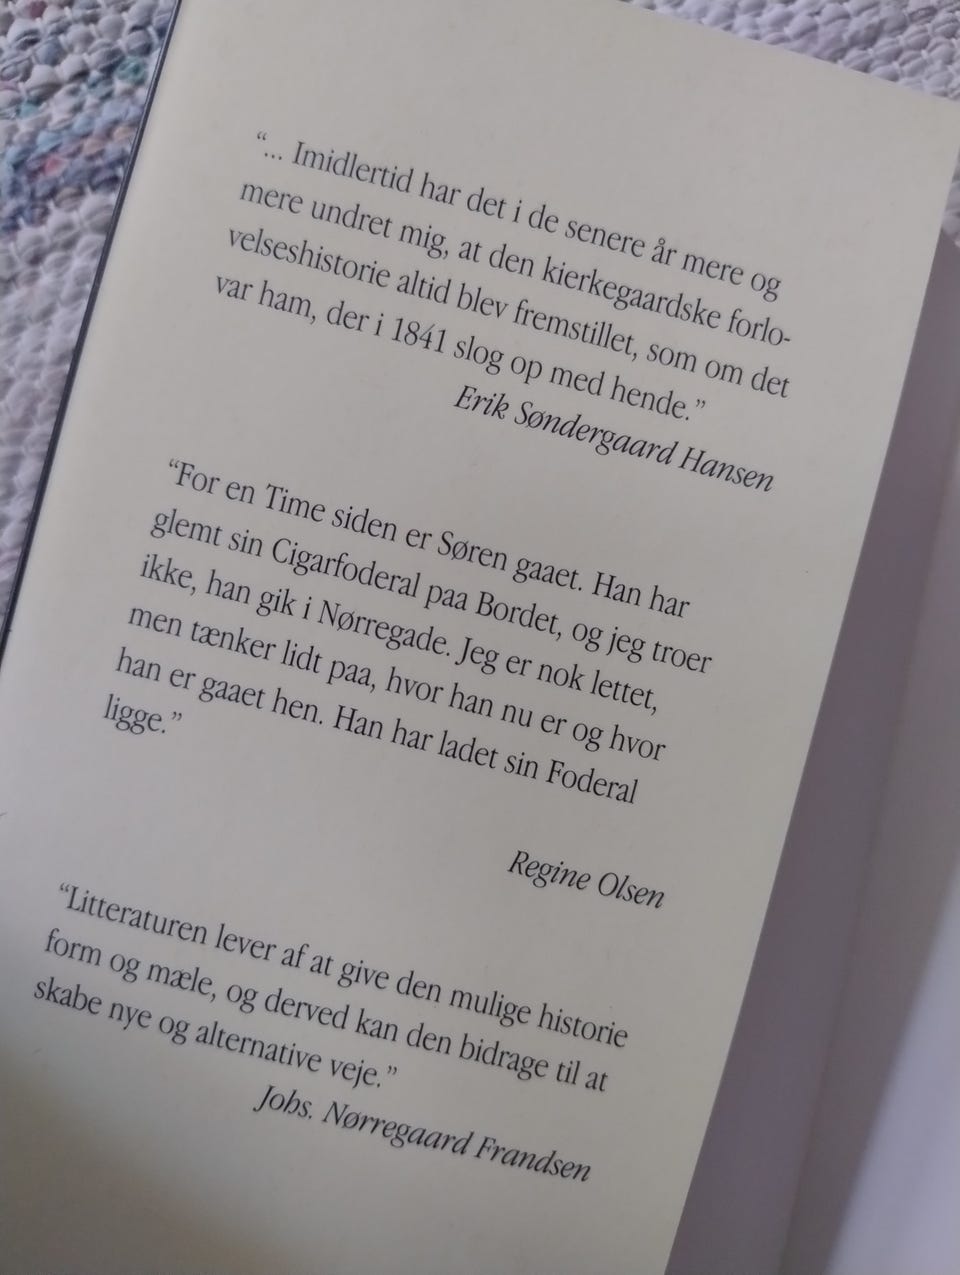 “... Imidlertid har det i de senere år mere og
mere undret mig, at den kierkegaardske forlo-
velseshistorie altid blev fremstillet, som om det
var ham, der i 1841 slog op med hende.”
Erik Søndergaard Hansen
“For en Time siden er Søren gaaet. Han har
glemt sin Cigarfoderal paa Bordet, og jeg troer
ikke, han gik i Nørregade. Jeg er nok lettet,
men tænker lidt paa, hvor han nu er og hvor
han er gaaet hen. Han har ladet sin Foderal
ligge.”
Regine Olsen
“Litteraturen lever af at give den mulige historie
form og mæle, og derved kan den bidrage til at
skabe nye og alternative veje.”
Johs. Nørregaard Frandsen